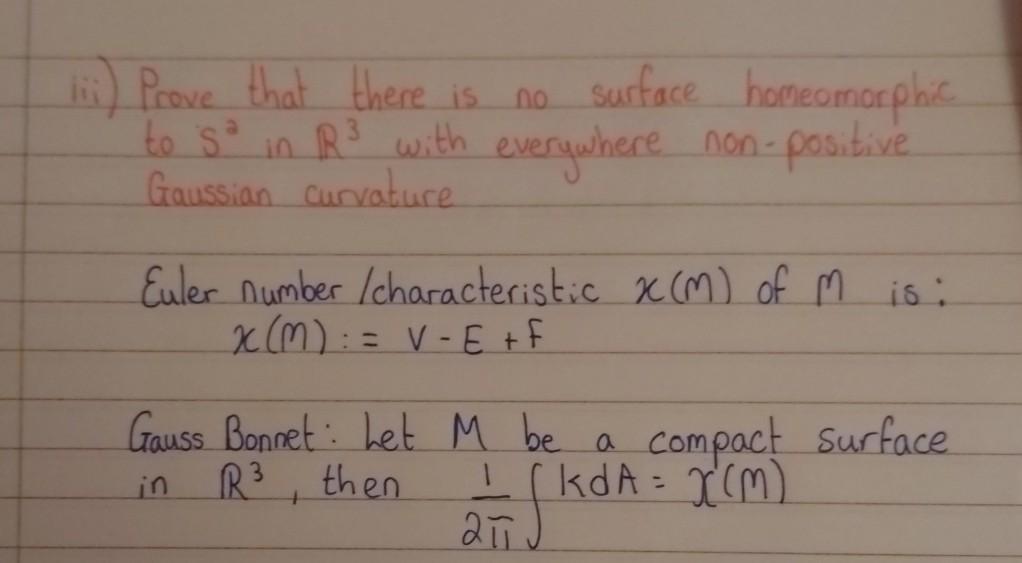 iii) Prove that there is no surface homeomorphic
to S² in ℝ³ with everywhere non-positive
Gaussian curvature
Euler number /characteristic χ(M) of M is :
χ(M) := V - E + F
Gauss Bonnet : Let M be a compact surface
in ℝ³ , then 1/2π ∫ KdA = χ(M)